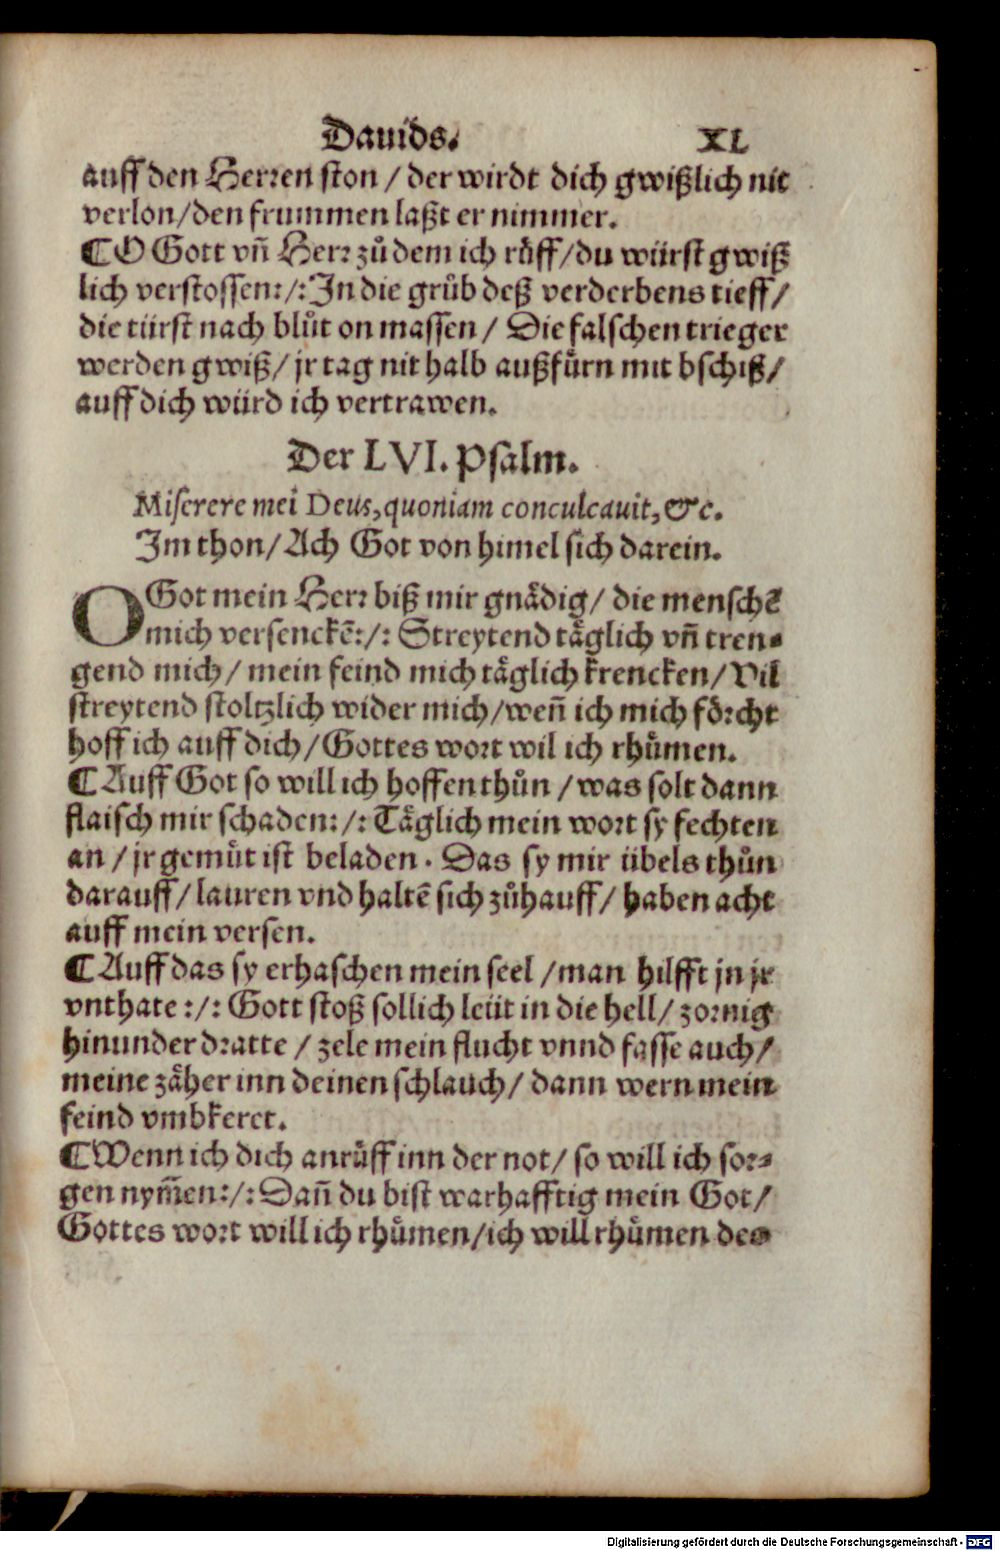 Dauids. XL
auff den Herren ston / der wirdt dich gwißlich nit
verlon/den frummen laßt er nimmer.
¶O Gott vñ Herr zů dem ich růff/du würst gwiß
lich verstossen:/: In die grůb deß verderbens tieff/
die türst nach blůt on massen / Die falschen trieger
werden gwiß/ jr tag nit halb außfürn mit bschiß/
auff dich würd ich vertrawen.
Der LVI. Psalm.
Miserere mei Deus, quoniam conculcauit, &c.
Im thon/ Ach Got von himel sich darein.
O Got mein Herr biß mir gnädig/ die menschẽ
mich versenckẽ:/: Streytend täglich vñ tren-
gend mich/ mein feind mich täglich krencken/ Vil
streytend stoltzlich wider mich/weñ ich mich förcht
hoff ich auff dich/ Gottes wort wil ich rhůmen.
¶Auff Got so will ich hoffen thůn / was solt dann
flaisch mir schaden:/: Täglich mein wort sy fechten
an / jr gemůt ist beladen. Das sy mir übels thůn
darauff/ lauren vnd haltẽ sich zůhauff/ haben acht
auff mein versen.
¶Auff das sy erhaschen mein seel /man hilfft jn jr
vnthate:/: Gott stoß sollich leüt in die hell/ zornig
hinunder dratte / zele mein flucht vnnd fasse auch/
meine zäher inn deinen schlauch/ dann wern mein
feind vmbkeret.
¶Wenn ich dich anrůff inn der not/ so will ich sor-
gen nym̃en:/: Dañ du bist warhafftig mein Got/
Gottes wort will ich rhůmen/ich will rhůmen des
Digitalisierung gefördert durch die Deutsche Forschungsgemeinschaft - DFG